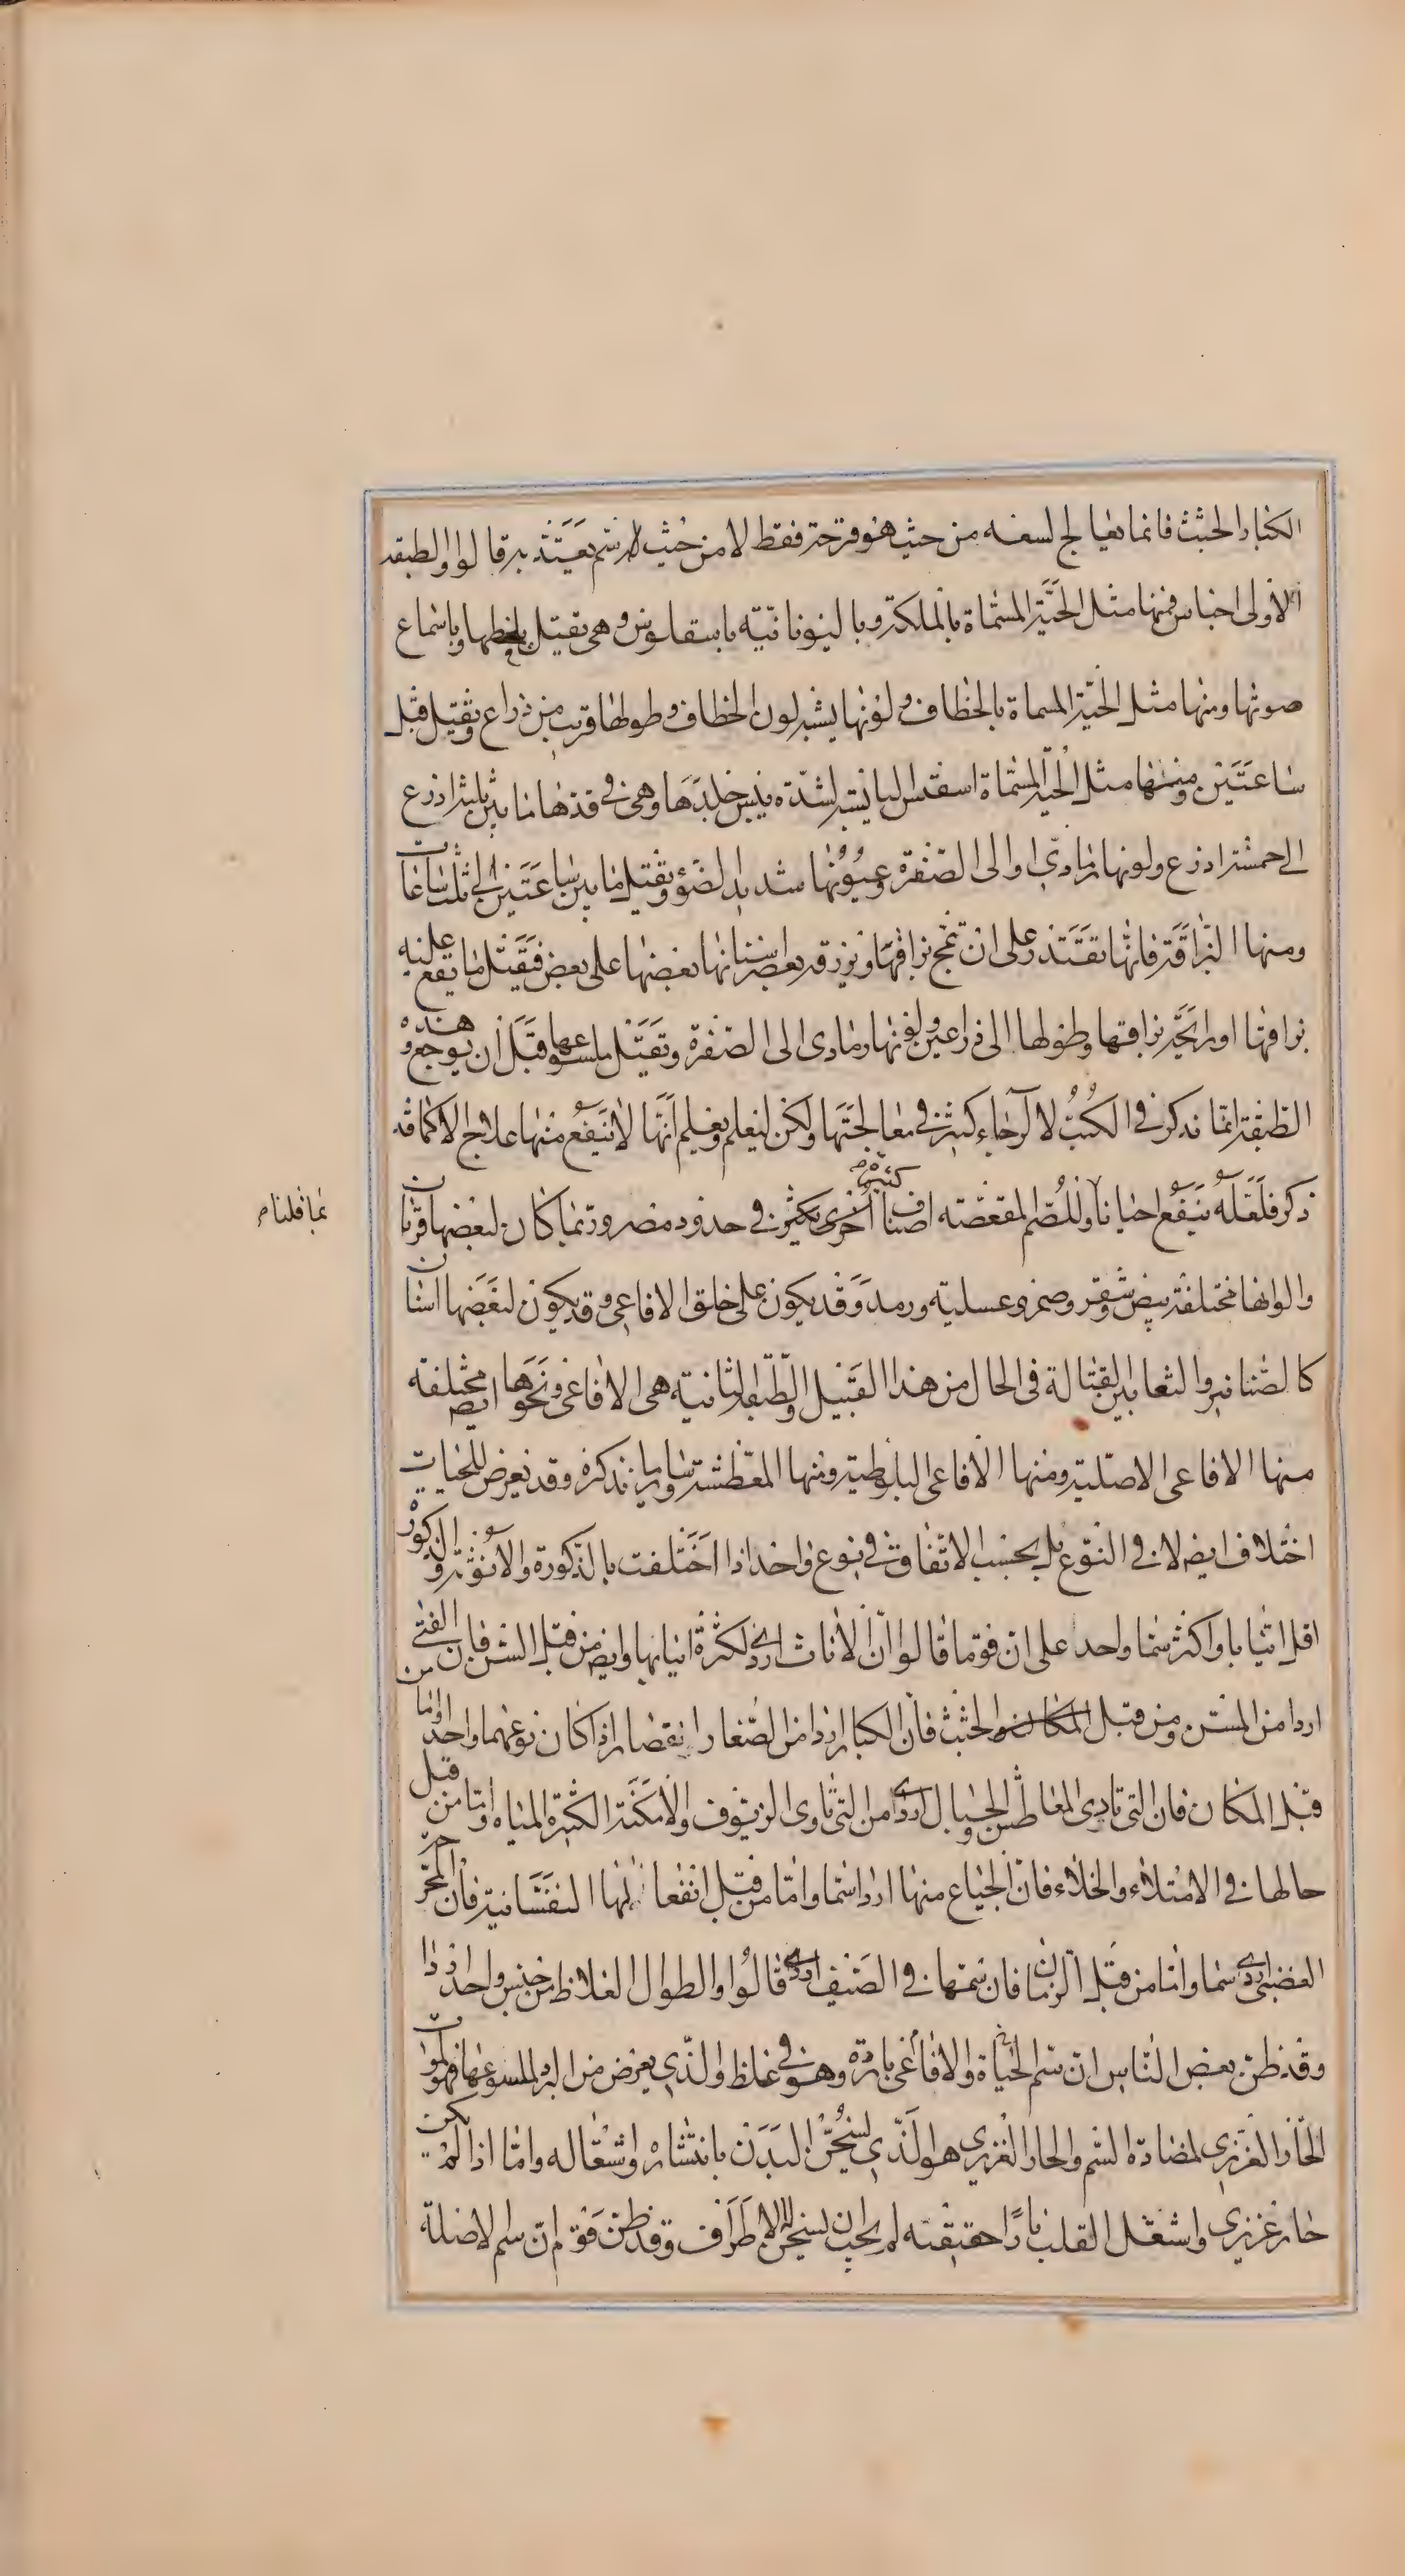 الكبار الخبث فانما تعالج لسعه من حيث هو قرحة فقط لا من حيث سم يعتد به قالوا والطبقه
الاولى اجناس فمنها مثل الحية المسماة بالملكة وباليونانية باسقلوس وهي تقتل بلحظها وباسماع
صوتها ومنها مثل الحية المسماة بالخطاف ولونها يشبه لون الخطاف وطولها قريب من ذراع وتقتل قبل
ساعتين ومنها مثل الحية المسماة اسفدس اليابسه لشدة يبس جلدها وهي في قدها ما بين ثلثة اذرع
الى خمسة اذرع ولونها رمادي او الى الصفرة وعيونها شديد الضوء وتقتل ما بين ساعتين الى ثلث ساعات
ومنها البزاقة فانها تقتدر على ان تمج بزاقها وتزرقه بعض اسنانها بعضها على بعض فيقتل ما يقع عليه
بزاقها او رايحة بزاقها وطولها الى ذراعين ولونها رمادي الى الصفرة وتقتل ملسوعها قبل ان يوجع وهذه
الطبقة انما نذكر في الكتب لا لرجاء كبير في معالجتها ولكن ليعلم ويعلم انها لا ينفع منها علاج الا كما قد
ذكر فلعله ينفع احيانا وللصم المقعصه اصناف اخرى كثيره يكثرن في حدود مصر وربما كان لبعضها قرنان
والوانها مختلفة بيض وشقر وصفر وعسلية ورمد وقد يكون على خلق الافاعي وقد يكون لبعضها اسنان
كالصنانير والثعابين القتالة في الحال من هذا القبيل والطبقة الثانية هي الافاعي ونحوها ايضا مختلفة
منها الافاعي الاصلية ومنها الافاعي البلوطية ومنها المعطشة وساير ما نذكره وقد يعرض للحيات
اختلاف ايضا لا في النوع بل بحسب الاتفاق في نوع واحد اذا اختلفت بالذكورة والانوثة والذكور
اقل انيابا واكثر سما واحد على ان قوما قالوا ان الاناث اردى لكثرة انيابها وايضا من قبل السن فان الفتى
اردا من المسن ومن قبل الخبث فان الكبار اردا من الصغار القصار اذا كان نوعهما واحد واما من
قبل المكان فان التي تاوي المعاطش والجبال اردى من التي تاوي الريوف والامكنة الكثيرة المياه واما من قبل
حالها في الامتلاء والخلاء فان الجياع منها اردا سما واما من قبل انفعالاتها النفسانية فان المحر
الغضبي اردى سما واما من قبل الزمان فان سمها في الصيف اردى قالوا والطوال الغلاظ من جنس واحد اردا
وقد ظن بعض الناس ان سم الحياة والافاعي باردة وهو في غلظ والذي يعرض من البرد لملسوعها فهو لموت
الحار الغريزي لمضادة السم والحار الغريزي هو الذي يسخن البدن بانتشاره واشتعاله واما اذا لم يكن
حار غريزي واشتعل القلب نارا حقيقته لم يجب ان يسخن الاطراف وقد ظن قوم ان سم الاصلة